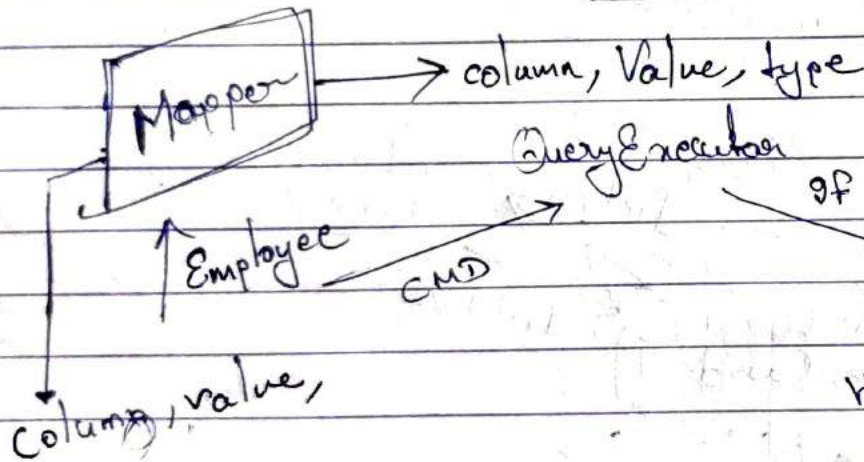 Mapper
column, Value, type
QueryExecutor
If
Employee
CMD
Column, value,